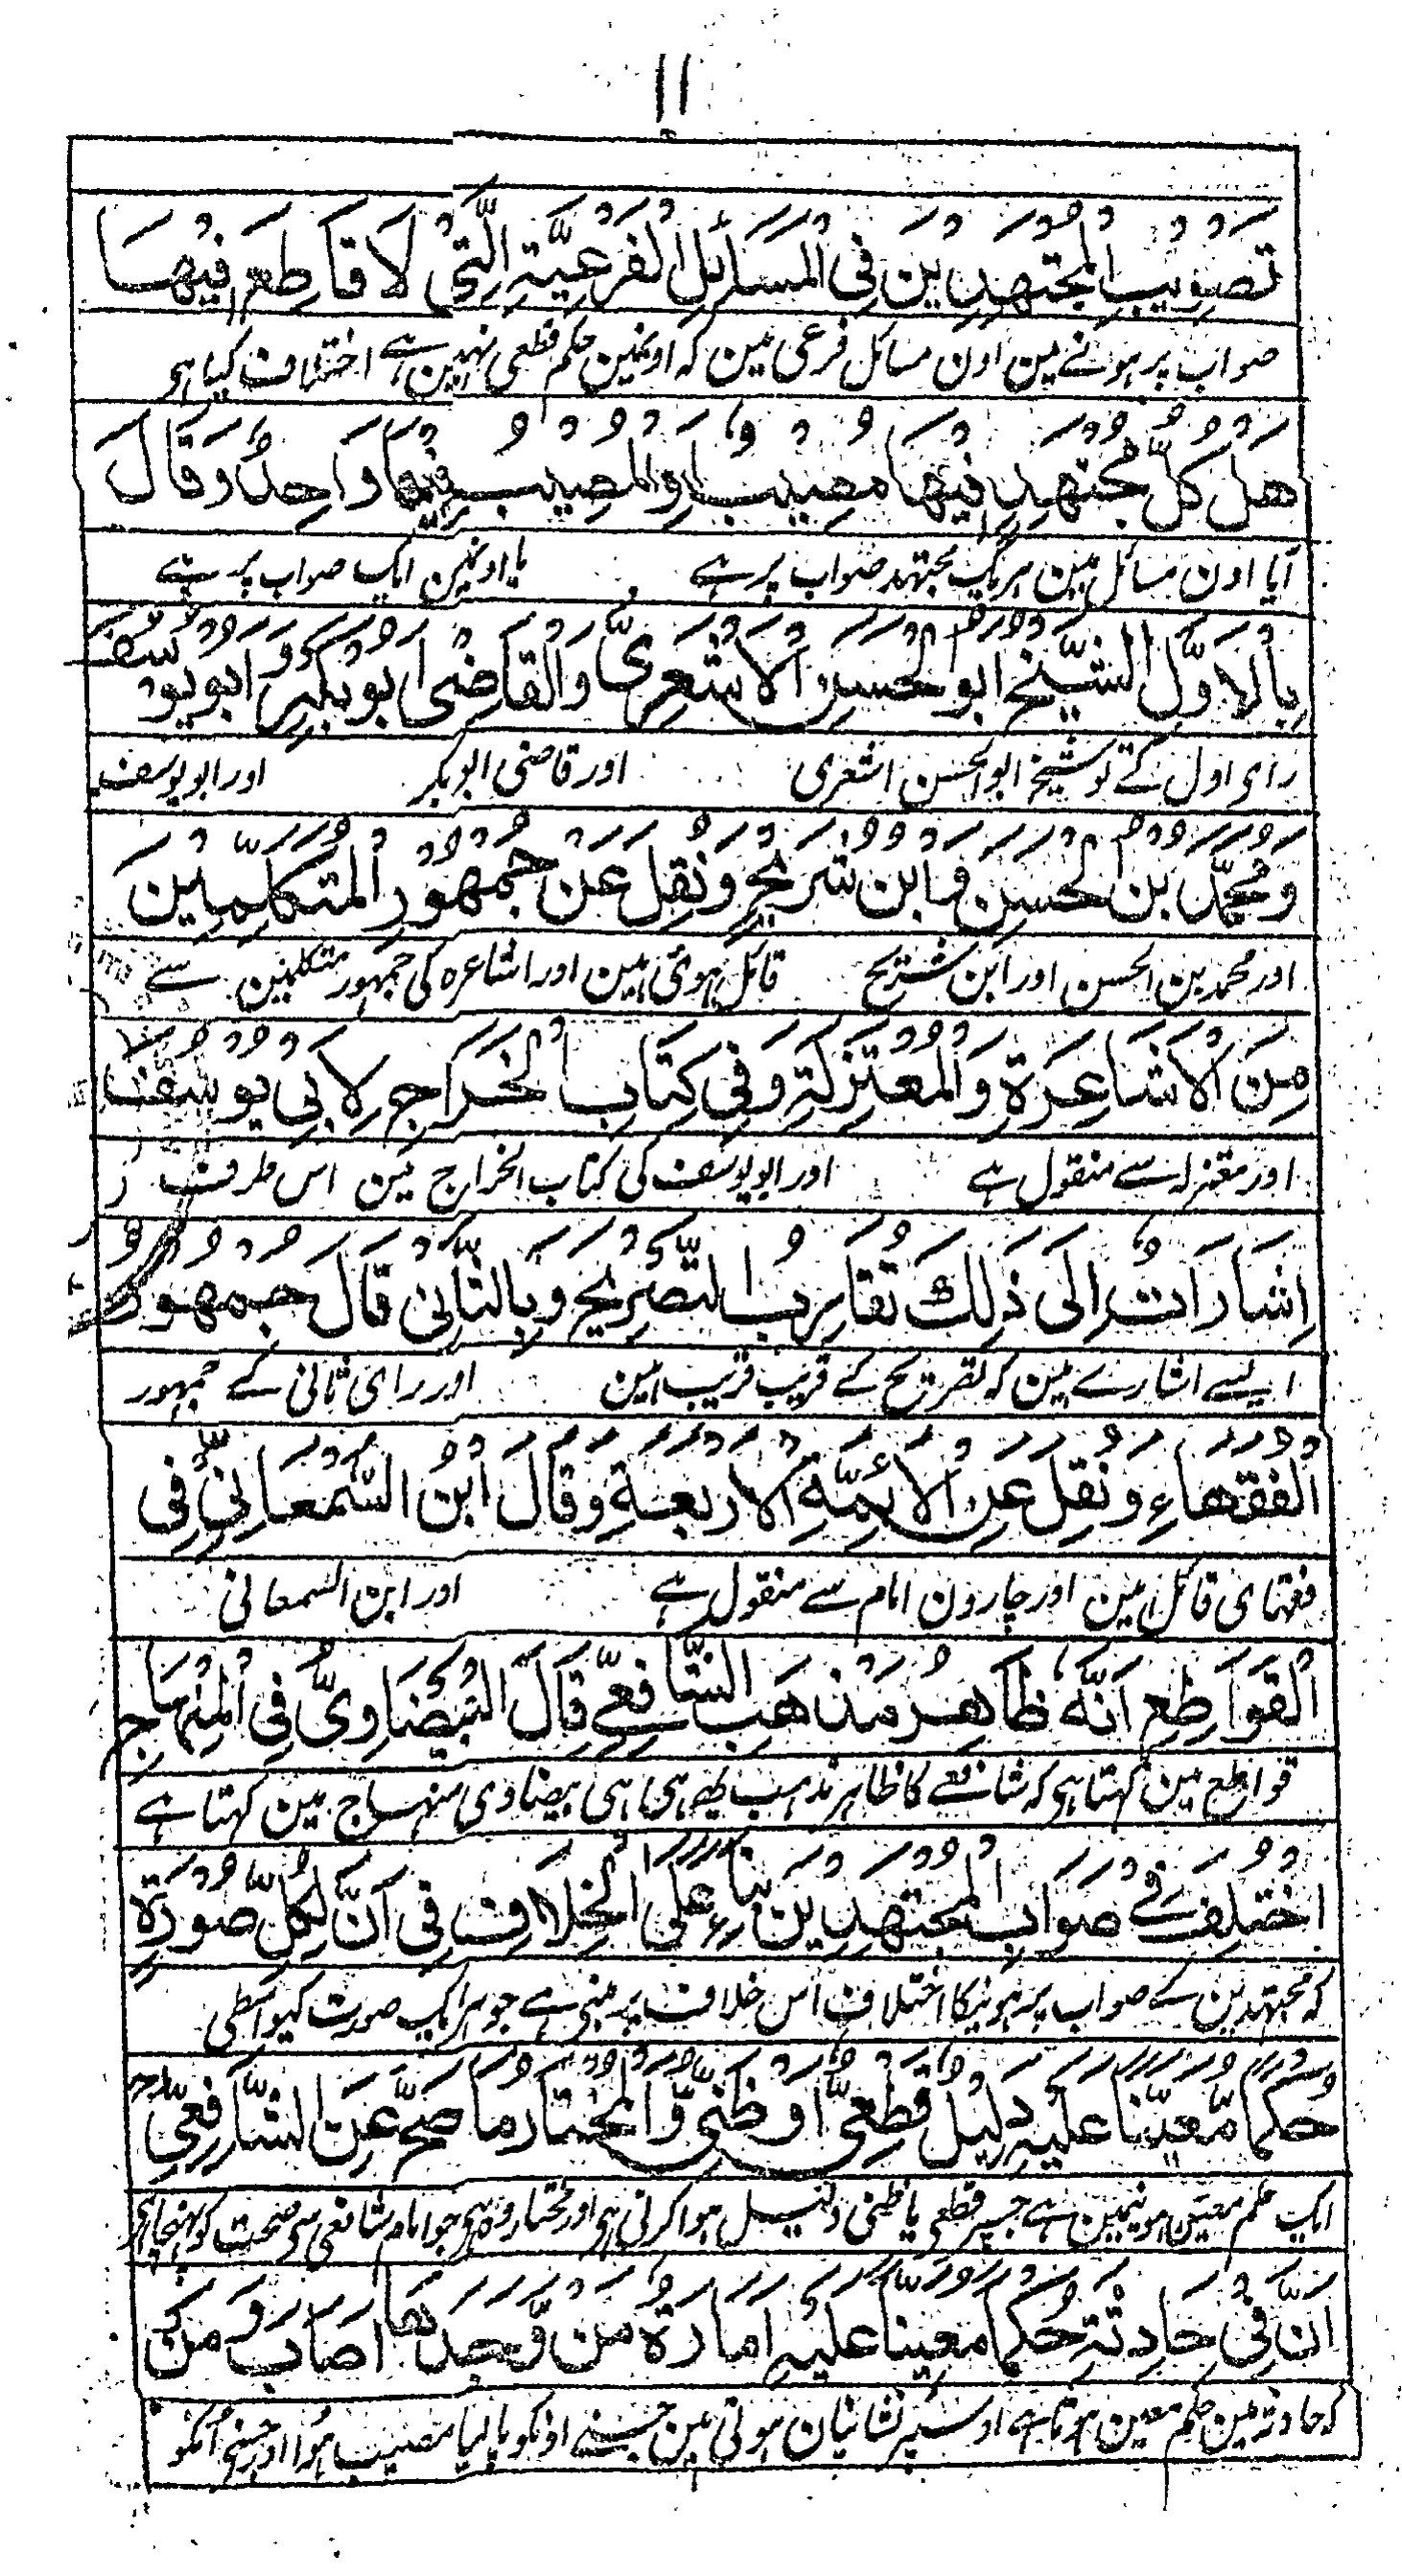 ۱۱
تَصْوِيْبِ الْمُجْتَهِدِيْنَ فِي الْمَسَائِلِ الْفَرْعِيَّةِ الَّتِيْ لَا قَاطِعَ فِيْهَا
صواب پر ہونے مین اون مسائل فرعی مین کہ اونمین حکم قطعی نہین ہے اختلاف کیا ہی
هَلْ كُلُّ مُجْتَهِدٍ فِيْهَا مُصِيْبٌ اَوِ الْمُصِيْبُ فِيْهَا وَاحِدٌ وَقَالَ
آیا اون مسائل مین ہر یک مجتہد صواب پر ہے یا اونمین ایک صواب پر ہے
بِالْاَوَّلِ الشَّيْخُ اَبُو الْحَسَنِ الْاَشْعَرِيُّ وَالْقَاضِيْ اَبُوْبَكْرٍ وَ اَبُوْيُوْسُفَ
رای اول کے تو شیخ ابو الحسن اشعری اور قاضی ابو بکر اور ابو یوسف
وَمُحَمَّدُ بْنُ الْحَسَنِ وَابْنُ شُرَيْحٍ وَنُقِلَ عَنْ جُمْهُوْرِ الْمُتَكَلِّمِيْنَ
اور محمد بن الحسن اور ابن شریح قائل ہوئی ہین اور اشاعرہ کی جمہور متکلمین سے
مِنَ الْاَشَاعِرَةِ وَالْمُعْتَزِلَةِ وَفِيْ كِتَابِ الْخَرَاجِ لِاَبِيْ يُوْسُفَ
اور معتزلہ سے منقول ہے اور ابو یوسف کی کتاب الخراج مین اس طرف
اِشَارَاتٌ اِلٰى ذٰلِكَ تُقَارِبُ التَّصْرِيْحَ وَبِالثَّانِيْ قَالَ جُمْهُوْرُ
ایسے اشارے ہین کہ تصریح کے قریب قریب ہین اور رای ثانی کے جمہور
الْفُقَهَاءِ وَنُقِلَ عَنِ الْاَئِمَّةِ الْاَرْبَعَةِ وَقَالَ ابْنُ السَّمْعَانِيِّ فِي
فقہای قائل ہین اور چارون امام سے منقول ہے اور ابن السمعانی
الْقَوَاطِعِ اَنَّهُ ظَاهِرُ مَذْهَبِ الشَّافِعِيِّ قَالَ الْبَيْضَاوِيُّ فِي الْمِنْهَاجِ
قواطع مین کہتا ہی کہ شافعے کا ظاہر مذہب یہی ہی بیضاوی منہاج مین کہتا ہے
اُخْتُلِفَ فِيْ صَوَابِ الْمُجْتَهِدِيْنَ بِنَاءً عَلَى الْخِلَافِ فِيْ اَنَّ لِكُلِّ صُوْرَةٍ
کہ مجتہدین کے صواب پر ہونیکا اختلاف اس خلاف پر مبنی ہے جو ہر ایک صورت کیواسطی
حُكْمًا مُّعَيَّنًا عَلَيْهِ دَلِيْلٌ قَطْعِيٌّ اَوْ ظَنِّيٌّ وَّالْمُخْتَارُ مَا صَحَّ عَنِ الشَّافِعِيِّ
ایک حکم معین ہونیمین ہے جسپر قطعی یا ظنی دلیل ہوا کرتی ہی اور مختار وہ ہی جو امام شافعی سی صحت کو پہنچا ہی
اَنَّ فِيْ حَادِثَةٍ حُكْمًا مُعَيَّنًا عَلَيْهِ اَمَارَةٌ مَنْ وَّجَدَهَا اَصَابَ وَمَنْ
کہ حادثہ مین حکم معین ہوتا ہے اوسپر نشانیان ہوتی ہین جسنے اونکو پا لیا مصیب ہوا اور جسنے انکو